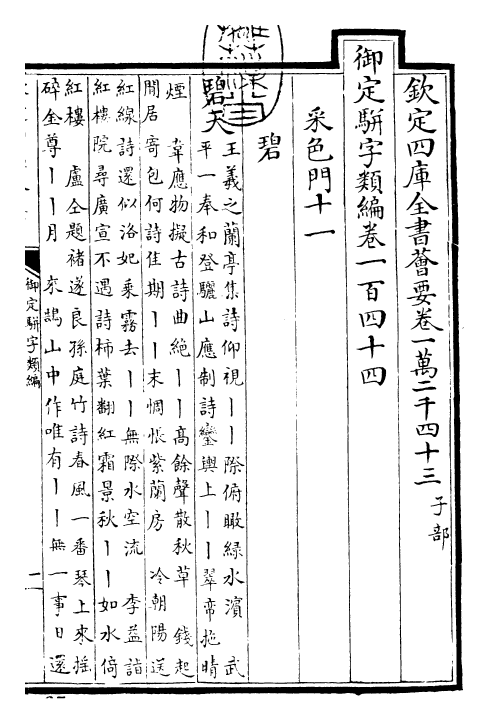 欽定四庫全書薈要卷一萬二千四十三 子部
御定駢字類編卷一百四十四
采色門十一
碧
碧天
王羲之蘭亭集詩仰視丨丨際俯瞰綠水濱 武
平一奉和登驪山應制詩鑾輿上丨丨翠帟拖晴
煙 韋應物擬古詩曲絶丨丨高餘聲散秋草 錢起
閒居寄包何詩佳期丨丨末惆悵紫蘭房 冷朝陽送
紅線詩還似洛妃乘霧去丨丨無際水空流 李益詣
紅樓院尋廣宣不遇詩柿葉翻紅霜景秋丨丨如水倚
紅樓 盧仝題褚遂良孫庭竹詩春風一番琴上來搖
碎金尊丨丨月 來鵠山中作唯有丨丨無一事日還
御定駢字類編
一